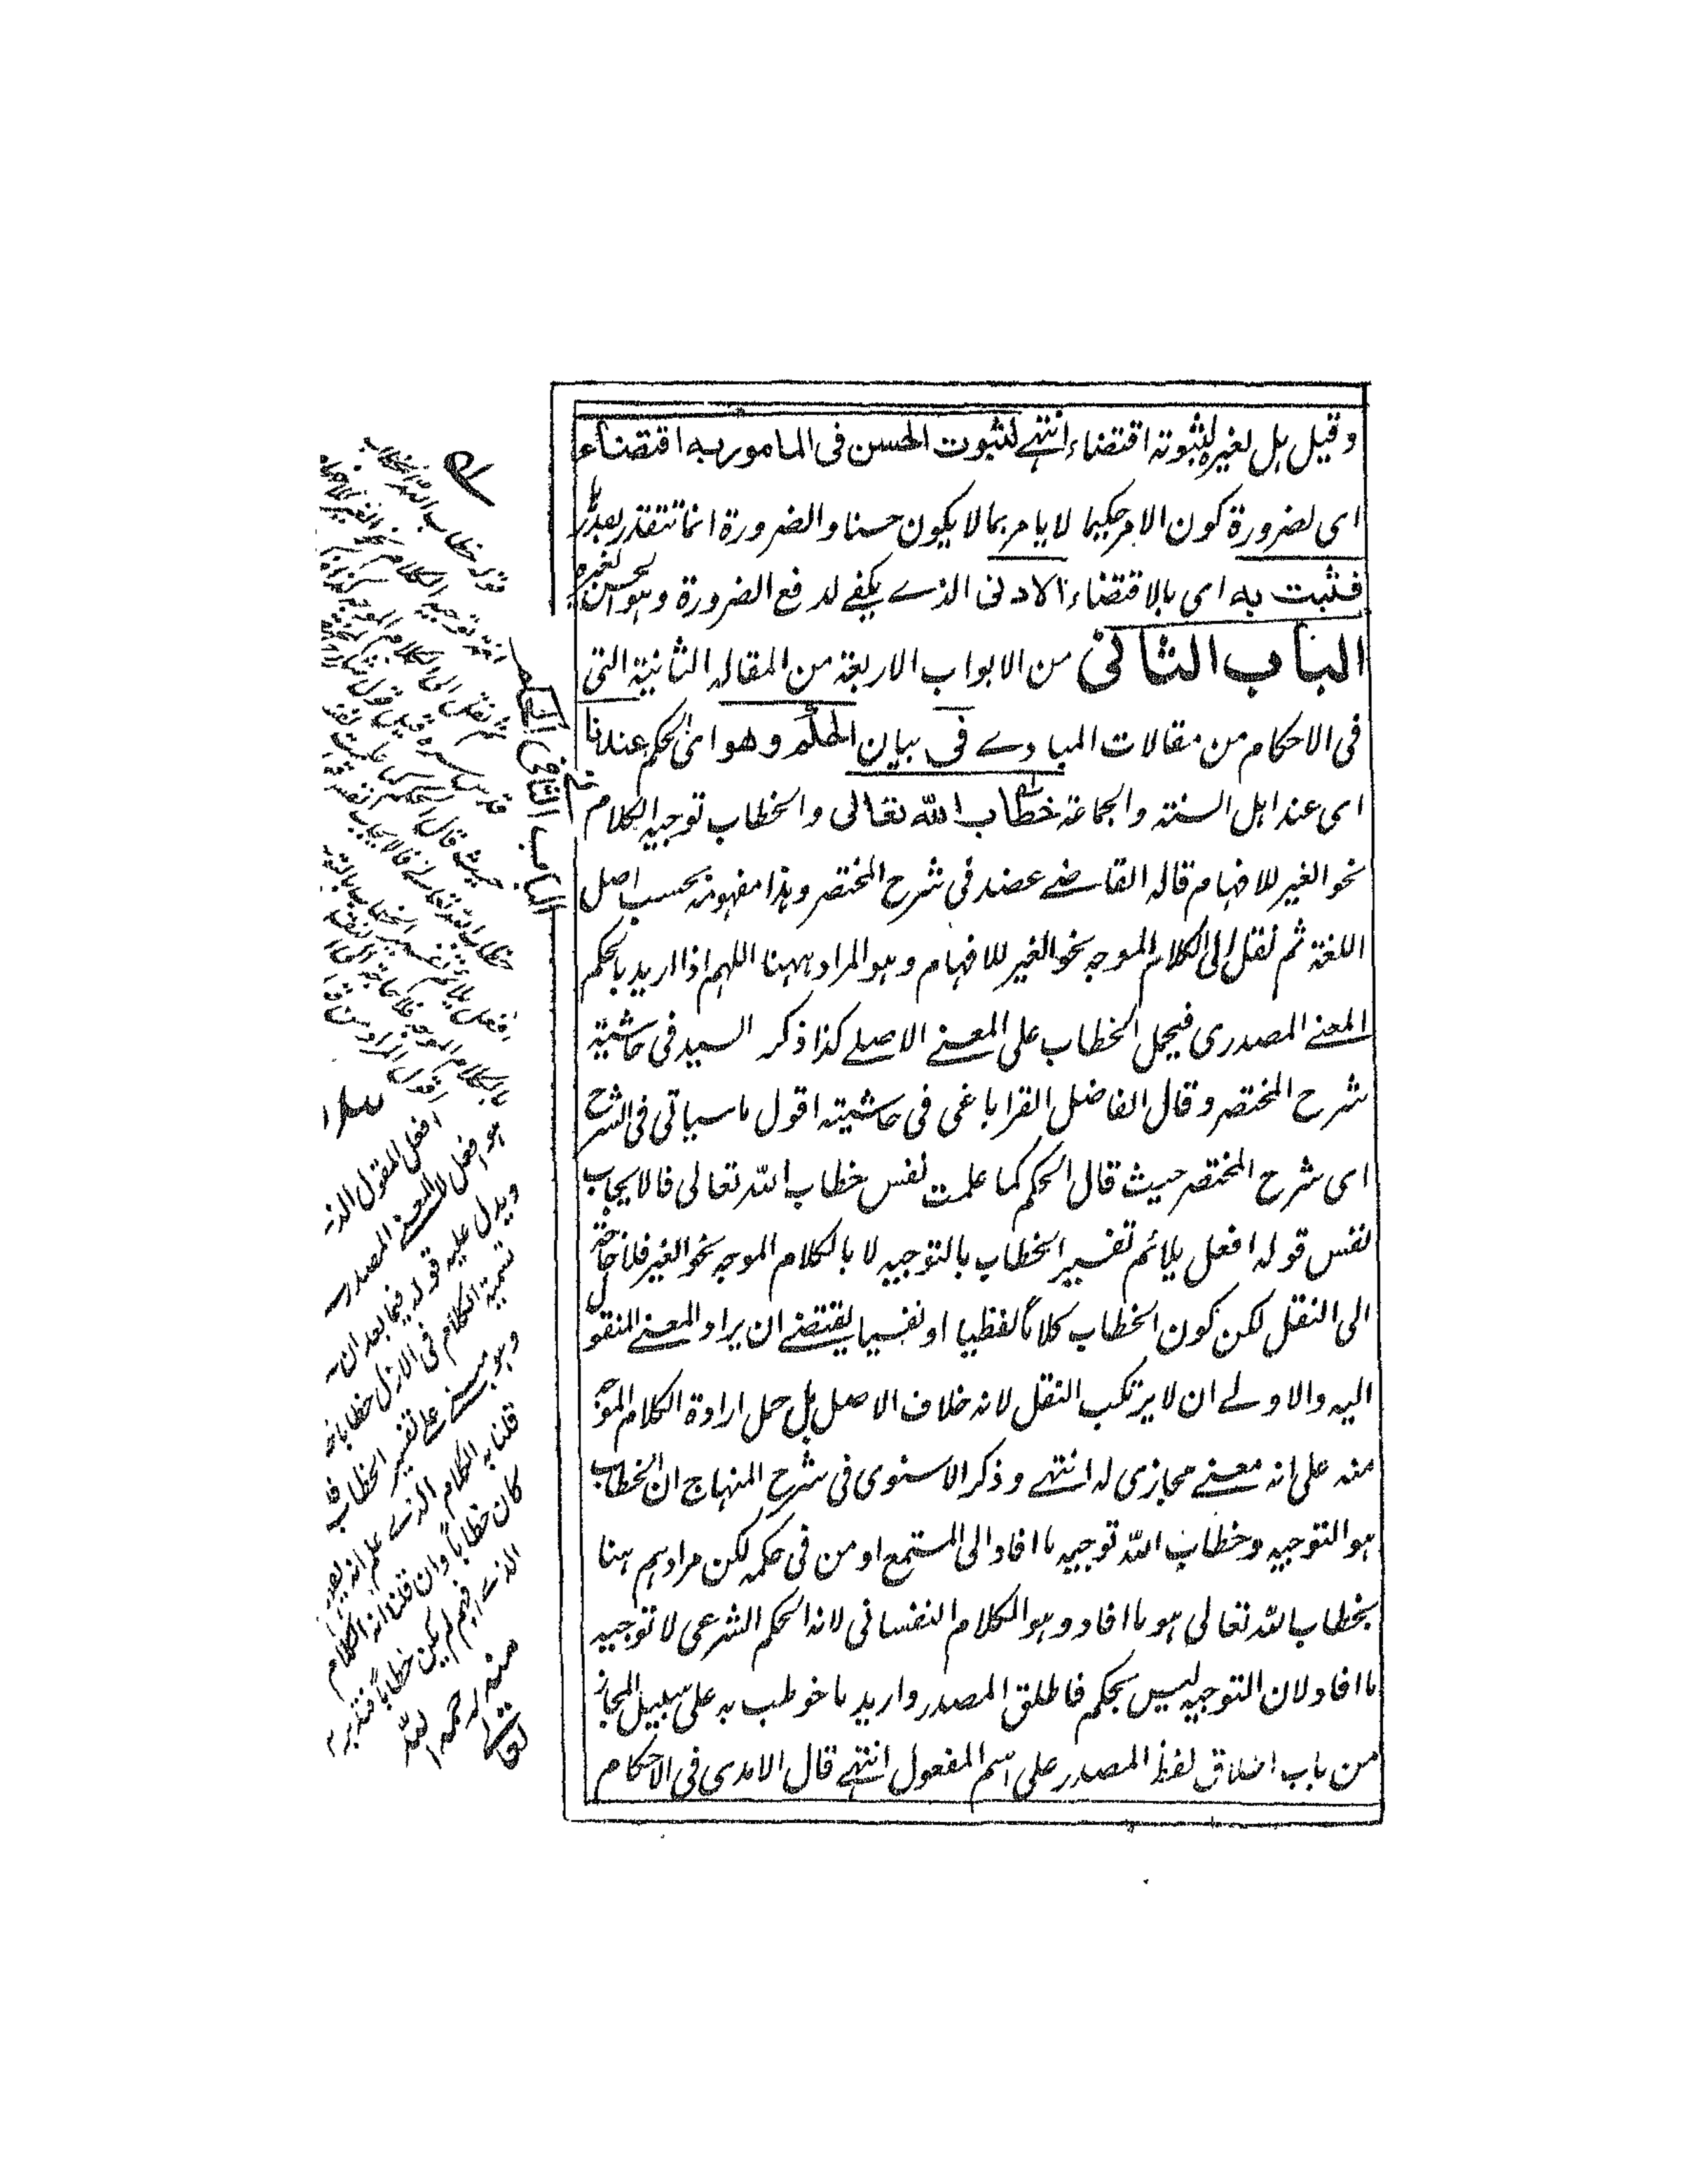 وقيل بل لغيره لثبوته اقتضاء انتهے لثبوت الحسن فى المامور به اقتضاء
اى لضرورة كون الامر حكيما لا يامر بما لا يكون حسنا والضرورة انما تتقدر بقدر
فثبت به اى بالاقتضاء الادنى الذے يكفے لدفع الضرورة وهو الحسن لغيره
الباب الثانى من الابواب الاربعة من المقالة الثانية التى
فى الاحكام من مقالات المبادے فى بيان الحكم وهو اى الحكم عندنا
اى عند اهل السنة والجماعة خطاب الله تعالى والخطاب توجيه الكلام
نحو الغير للافهام قاله القاضے عضد فى شرح المختصر وهذا مفهومه بحسب اصل
اللغة ثم نقل الى الكلام الموجه نحو الغير للافهام وهو المراد ههنا اللهم اذا اريد بالحكم
المعنے المصدرى فيحمل الخطاب على المعنے الاصلے كذا ذكر السيد فى حاشية
شرح المختصر وقال الفاضل القراباغى فى حاشيته اقول ما سياتى فى الشرح
اى شرح المختصر حيث قال الحكم كما علمت نفس خطاب الله تعالى فالايجاب
نفس قوله افعل يلائم تفسير الخطاب بالتوجيه لا بالكلام الموجه نحو الغير فلا حاجة
الى النقل لكن كون الخطاب كلاما لفظيا او نفسيا يقتضے ان يراد المعنے المنقول
اليه والاولے ان لا يرتكب النقل لانه خلاف الاصل بل حمل ارادة الكلام الموجه
منه على انه معنے مجازى له انتهے وذكر الاسنوى فى شرح المنهاج ان الخطاب
هو التوجيه وخطاب الله توجيه ما افاد الى المستمع او من فى حكمه لكن مرادهم هنا
بخطاب الله تعالى هو ما افاد وهو الكلام النفسانى لانه الحكم الشرعى لا توجيه
ما افاد لان التوجيه ليس بحكم فاطلق المصدر واريد ما خوطب به على سبيل المجاز
من باب اطلاق لفظ المصدر على اسم المفعول انتهے قال الامدى فى الاحكام
الباب الثانى فى الحكم
قوله خطاب الله الخطاب
حيث قال الحكم
افعل المقول الذ
هو افعل لا المعنے المصدرے
ويدل عليه قوله فيما بعد ان
تسمية الكلام فى الازل خطابا
وهو مبنے على تفسير الخطاب فان
قلنا به الكلام الذے علم انه يفهم
كان خطابا وان قلنا انه الكلام
الذے افهم لم يكن خطابا فتدبر
منه رحمه الله
تعالے